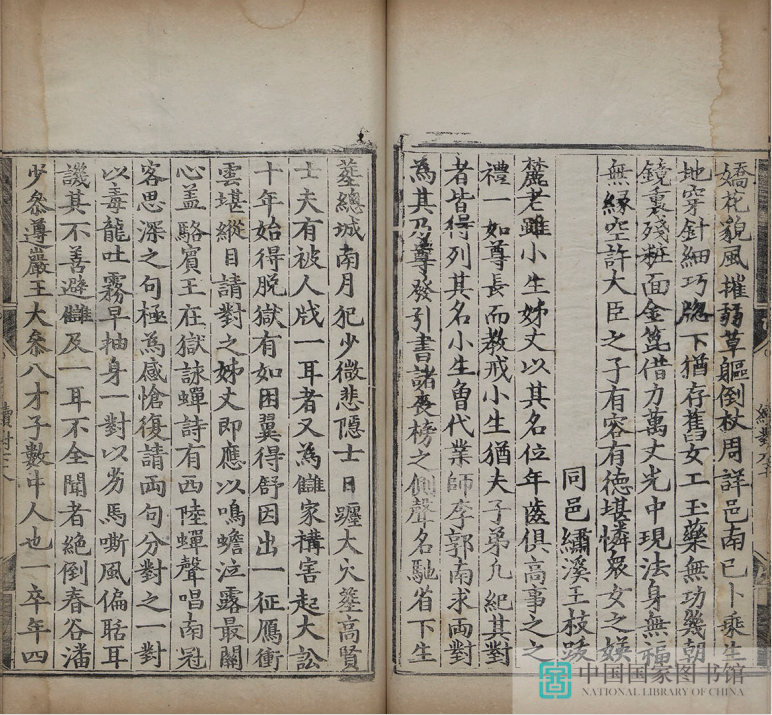 嬌花貌風摧弱草軀倒杖周詳邑南已卜乘生
地穿針細巧牕下猶存舊女工玉藥無功幾朝
鏡裏殘粧面金篦借力萬丈光中現法身無福
無緣空許大臣之子有容有德堪憐眾女之媖
同邑繡溪王枝陵
麓老雖小生姊丈以其名位年齒俱高事之之
禮一如尊長而教戒小生猶夫子弟凡紀其對
者皆得列其名小生曾代業師李郭南求兩對
為其乃尊發引書諸喪榜之側聲名馳省下生
塟總城南月犯少微悲隱士日躔大火塟高賢
士夫有被人戕一耳者又為讎家搆害起大訟
十年始得脫獄有如困翼得舒因出一征鴈衝
雲堪縱目請對之姊丈即應以鳴蟾泣露最關
心盖駱賓王在獄詠蟬詩有西陸蟬聲唱南冠
客思深之句極為感愴復請両句分對之一對
以毒龍吐霧早抽身一對以劣馬嘶風偏聒耳
譏其不善避讎及一耳不全聞者絕倒春谷潘
少叅遵嚴王大叅八才子數中人也一卒年四
續對 六八
中国国家图书馆
NATIONAL LIBRARY OF CHINA